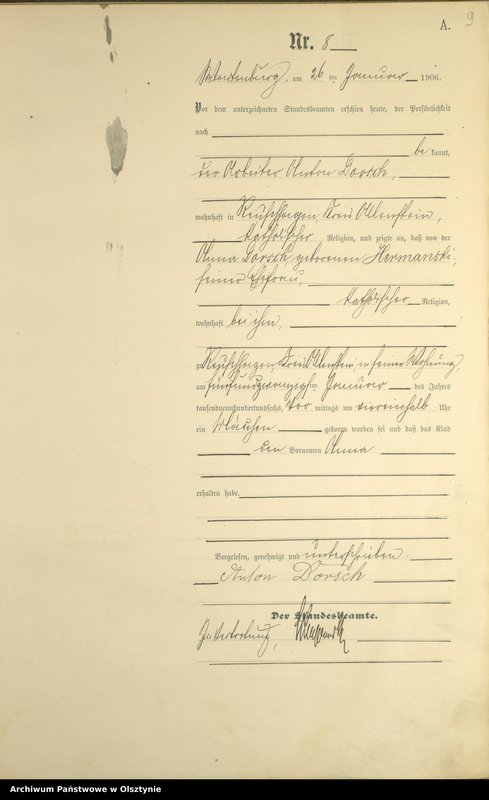 9
A.
Nr. 8
Wartenburg, am 26 ten Januar 1906.
Vor dem unterzeichneten Standesbeamten erschien heute, der Persönlichkeit
nach
be kannt,
der Arbeiter Anton Dorsch,
wohnhaft in Reuschhagen, Kreis Allenstein,
katholischer Religion, und zeigte an, daß von der
Anna Dorsch geborenen Hermanski,
seiner Ehefrau,
katholischer Religion,
wohnhaft bei ihm,
zu Reuschhagen, Kreis Allenstein, in seiner Wohnung
am fünfundzwanzigsten Januar des Jahres
tausendneunhundertundsechs, Vor mittags um viereinhalb Uhr
ein Mädchen geboren worden sei und daß das Kind
den Vornamen Anna
erhalten habe.
Vorgelesen, genehmigt und unterschrieben.
Anton Dorsch
Der Standesbeamte.
In Vertretung,
Archiwum Państwowe w Olsztynie